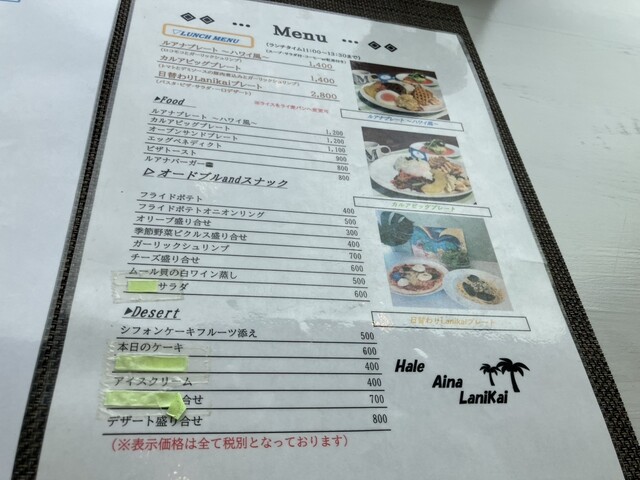 Menu
♡LUNCH MENU
【ランチタイム11:00～13:30まで】
ルアナプレート ～ハワイ風～
1,400
(ロコモコとガーリックシュリンプ)
カルアピッグプレート
1,400
日替わりLanikaiプレート
2,800
(パスタ・ピザ・サラダ・デザート)
▶Food
※ライスをライ麦パンへ変更可
ルアナプレート ～ハワイ風～
1,200
カルアピッグプレート
1,200
オープンサンドプレート
1,100
エッグベネディクト
900
ピザトースト
800
ルアナバーガー
800
▷オードブルandスナック
フライドポテト
400
フライドポテトオニオンリング
500
オリーブ盛り合せ
300
季節野菜ピクルス盛り合せ
400
ガーリックシュリンプ
700
チーズ盛り合せ
600
ムール貝の白ワイン蒸し
500
サラダ
600
▶Desert
シフォンケーキフルーツ添え
500
本日のケーキ
600
400
アイスクリーム
400
合せ
700
デザート盛り合せ
800
(※表示価格は全て税別となっております)
ルアナプレート ～ハワイ風～
カルアピッグプレート
日替わりLanikaiプレート
Hale
Aina
LaniKai